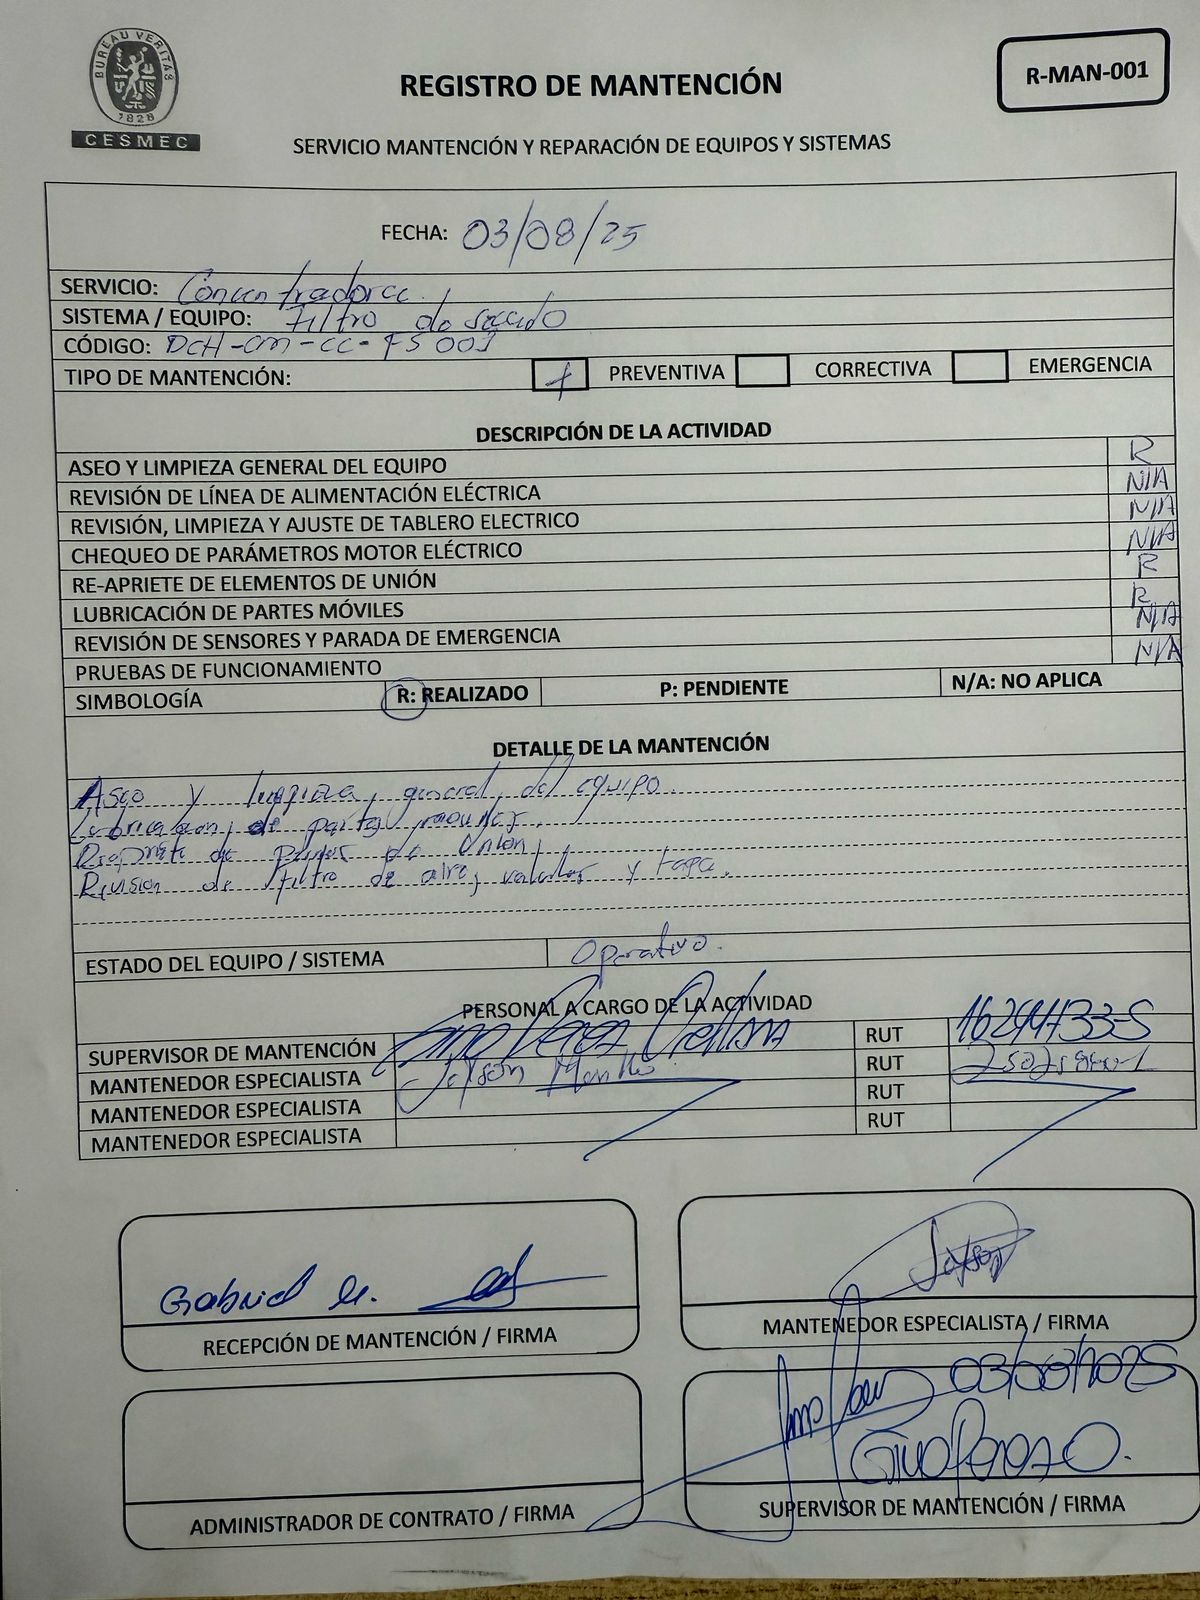 BUREAU VERITAS
1828
CESMEC
REGISTRO DE MANTENCIÓN
R-MAN-001
SERVICIO MANTENCIÓN Y REPARACIÓN DE EQUIPOS Y SISTEMAS
FECHA: 03/08/25
SERVICIO: Concentradora
SISTEMA / EQUIPO: Filtro de secado
CÓDIGO: DCH-CM-CC-FS001
TIPO DE MANTENCIÓN: X PREVENTIVA CORRECTIVA EMERGENCIA
DESCRIPCIÓN DE LA ACTIVIDAD
ASEO Y LIMPIEZA GENERAL DEL EQUIPO R
REVISIÓN DE LÍNEA DE ALIMENTACIÓN ELÉCTRICA N/A
REVISIÓN, LIMPIEZA Y AJUSTE DE TABLERO ELECTRICO N/A
CHEQUEO DE PARÁMETROS MOTOR ELÉCTRICO N/A
RE-APRIETE DE ELEMENTOS DE UNIÓN R
LUBRICACIÓN DE PARTES MÓVILES R
REVISIÓN DE SENSORES Y PARADA DE EMERGENCIA N/A
PRUEBAS DE FUNCIONAMIENTO N/A
SIMBOLOGÍA R: REALIZADO P: PENDIENTE N/A: NO APLICA
DETALLE DE LA MANTENCIÓN
Aseo y limpieza general del equipo.
Lubricacion de partes moviles.
Reapriete de de Union,
Revision de filtro de aire, valvulas y tapa.
ESTADO DEL EQUIPO / SISTEMA Operativo.
PERSONAL A CARGO DE LA ACTIVIDAD
SUPERVISOR DE MANTENCIÓN Perez RUT
MANTENEDOR ESPECIALISTA Jeyson RUT
MANTENEDOR ESPECIALISTA RUT
MANTENEDOR ESPECIALISTA RUT
Gabriel M.
RECEPCIÓN DE MANTENCIÓN / FIRMA
Jeyson
MANTENEDOR ESPECIALISTA / FIRMA
03/08/2025
ADMINISTRADOR DE CONTRATO / FIRMA
SUPERVISOR DE MANTENCIÓN / FIRMA